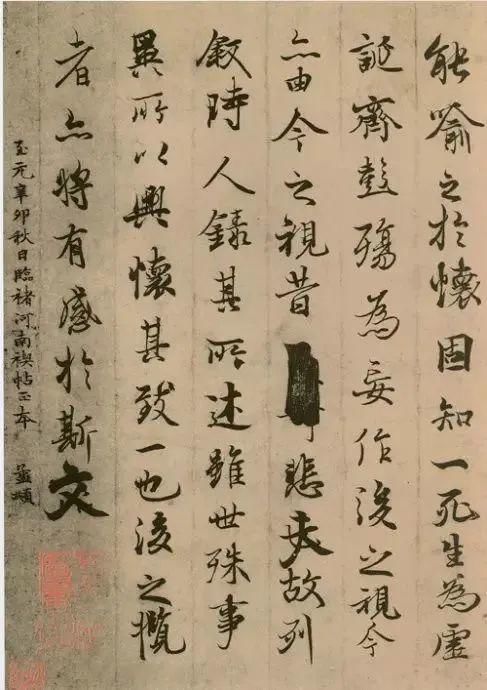 能喻之於懷固知一死生為虛
誕齊彭殤為妄作後之視今
亦由今之視昔悲夫故列
敘時人錄其所述雖世殊事
異所以興懷其致一也後之攬
者亦將有感於斯文
至元辛卯秋日臨褚河南禊帖正本 孟頫